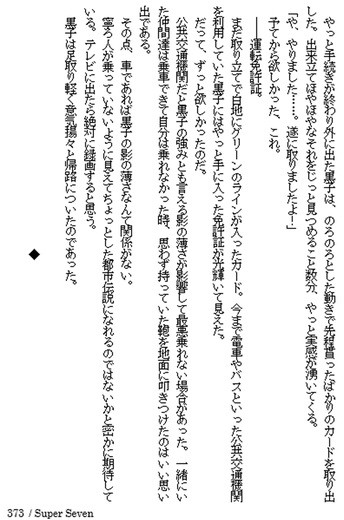 やっと手続きが終わり外に出た黒子は、のろのろとした動きで先程貰ったばかりのカードを取り出
した。出来立てほやほやなそれをじっと見つめること数分、やっと実感が湧いてくる。
「や、やりました……。遂に取りましたよ！」
予てから欲しかった、これ。
――運転免許証。
まだ取り立てで白地にグリーンのラインが入ったカード。今まで電車やバスといった公共交通機関
を利用していた黒子にはやっと手に入った免許証が光輝いて見えた。
だって、ずっと欲しかったのだ。
公共交通機関だと黒子の強みとも言える影の薄さが影響して最悪乗れない場合があった。一緒にい
た仲間達は乗車できて自分は乗れなかった時、思わず持っていた鞄を地面に叩きつけたのはいい思い
出である。
その点、車であれば黒子の影の薄さなんて関係がない。
寧ろ人が乗っていないように見えてちょっとした都市伝説になれるのではないかと密かに期待して
いる。テレビに出たら絶対に録画すると思う。
黒子は足取り軽く意気揚々と帰路についたのであった。
◆
373 / Super Seven